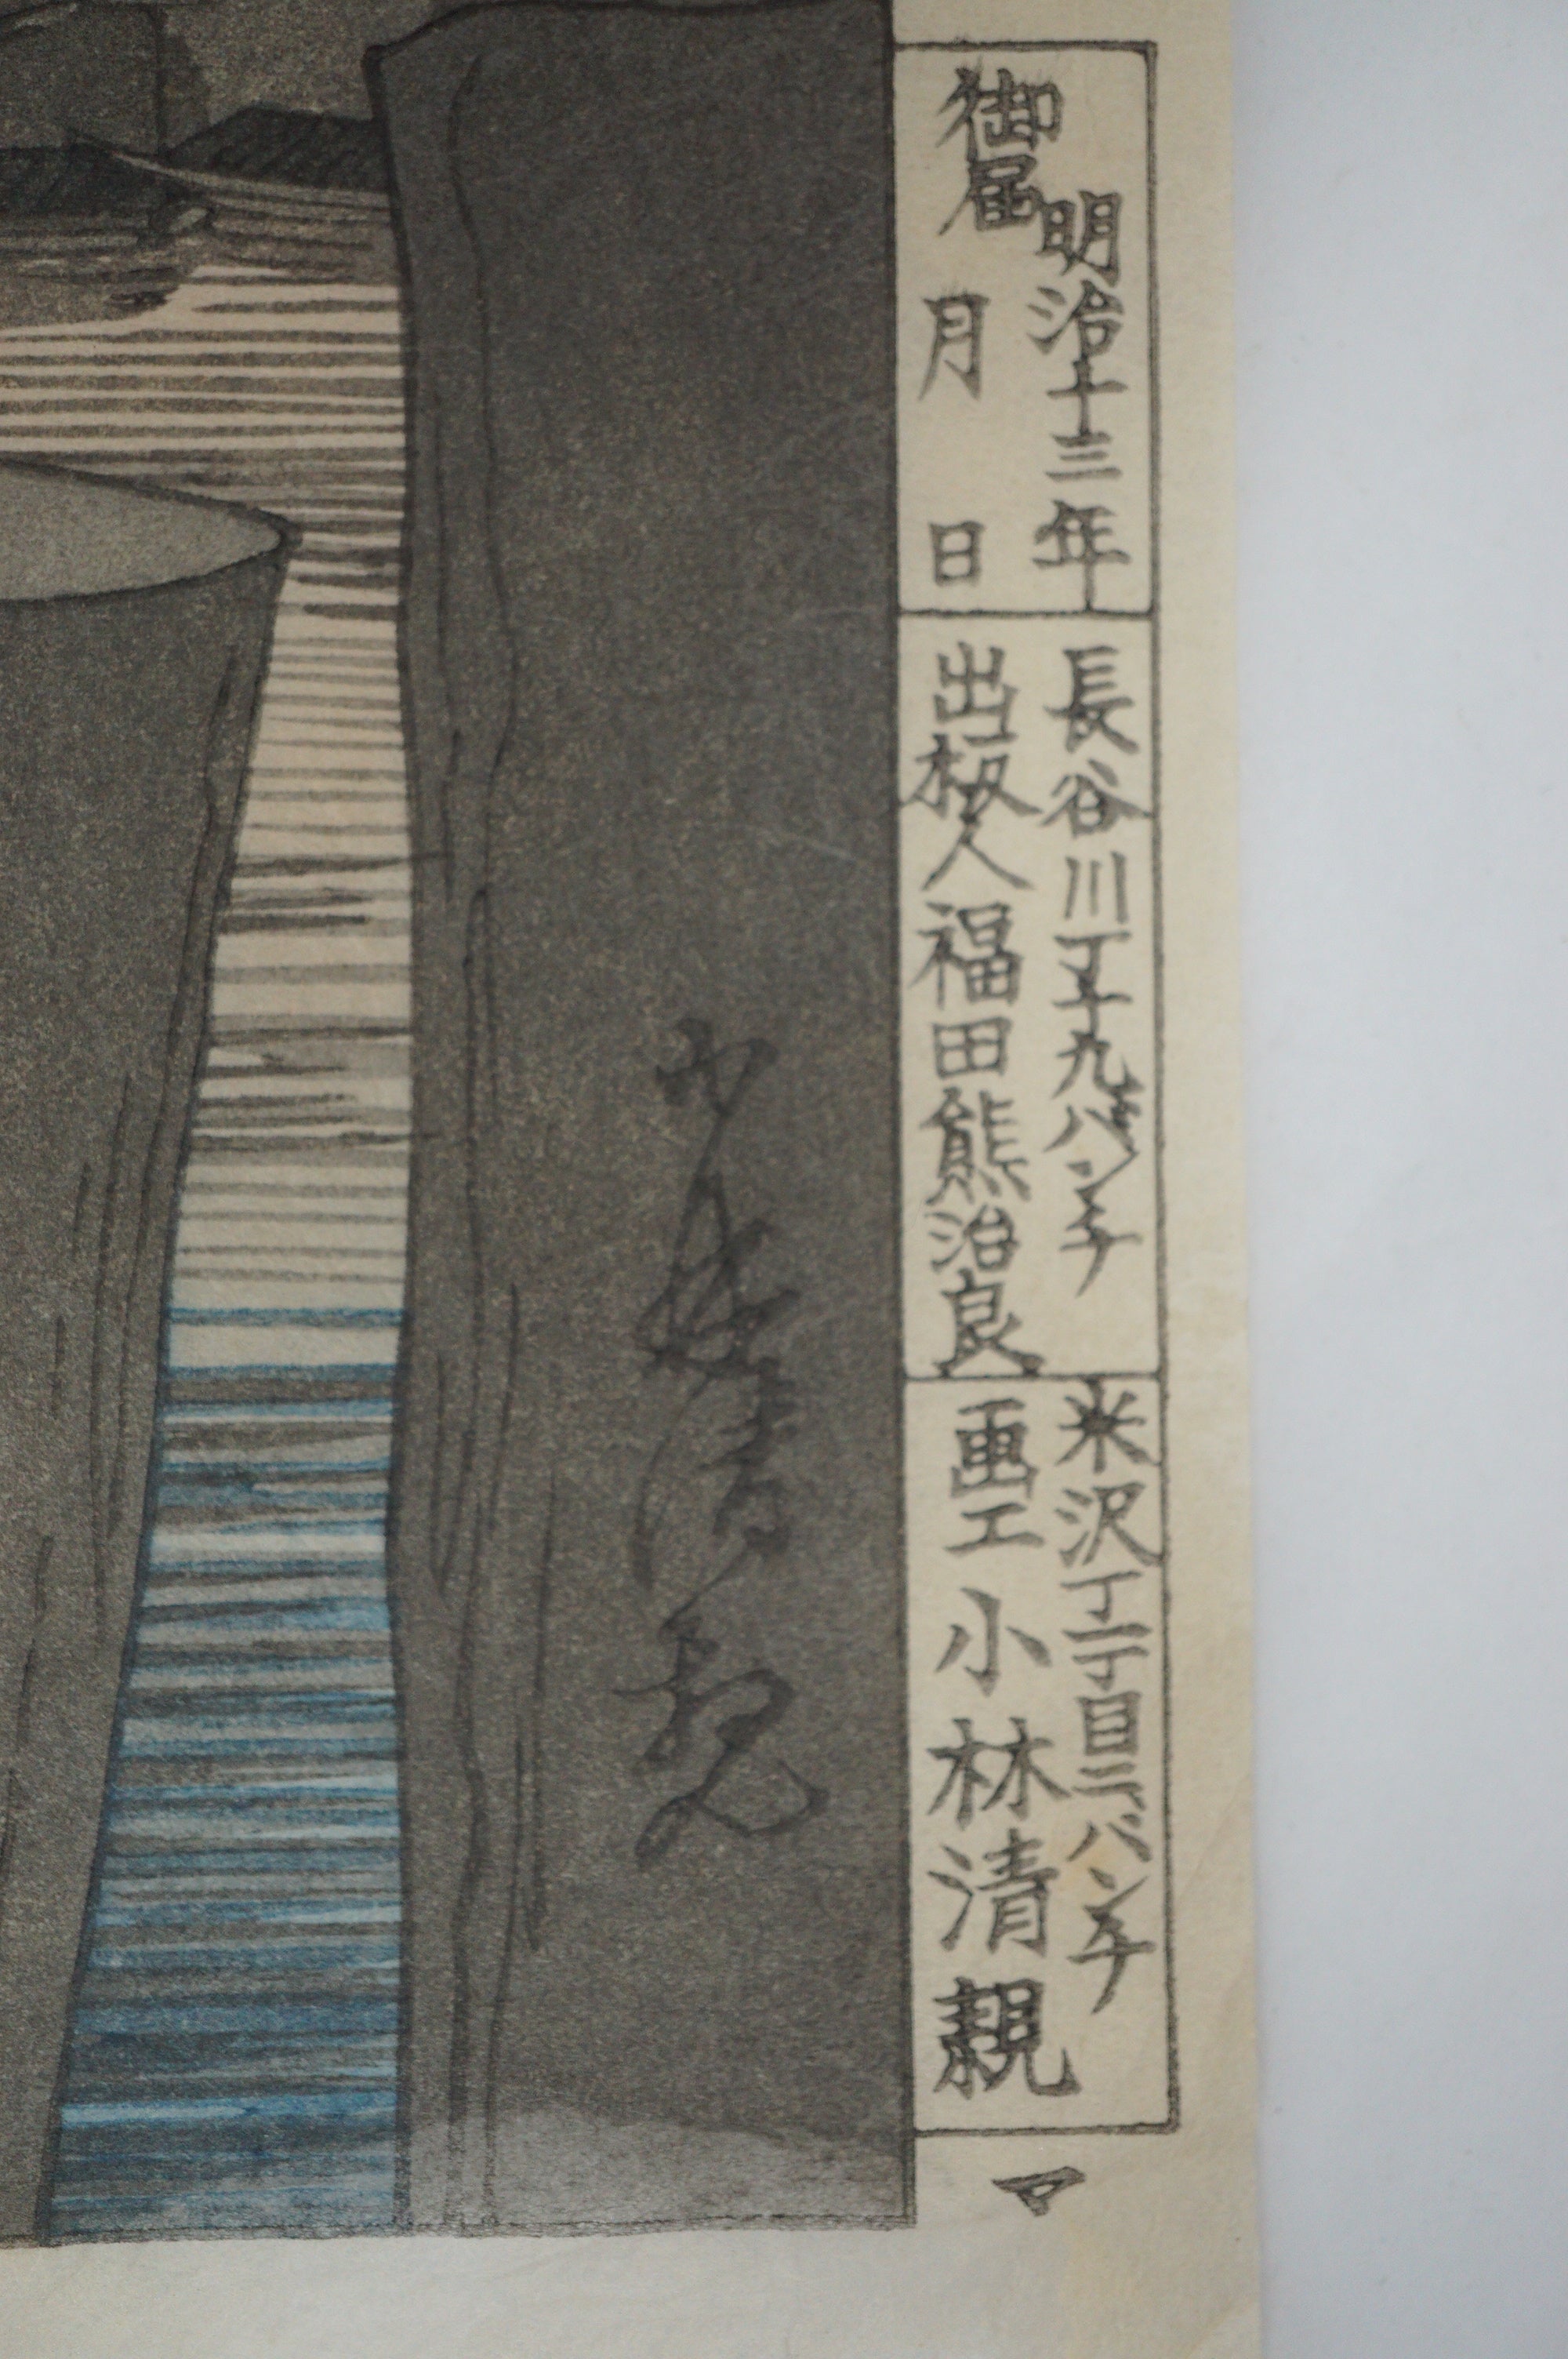 明治十三年
御届 月 日
長谷川丁十九バンチ
出板人福田熊治良
米沢丁一丁目三バンチ
画工 小林清親
小林清親